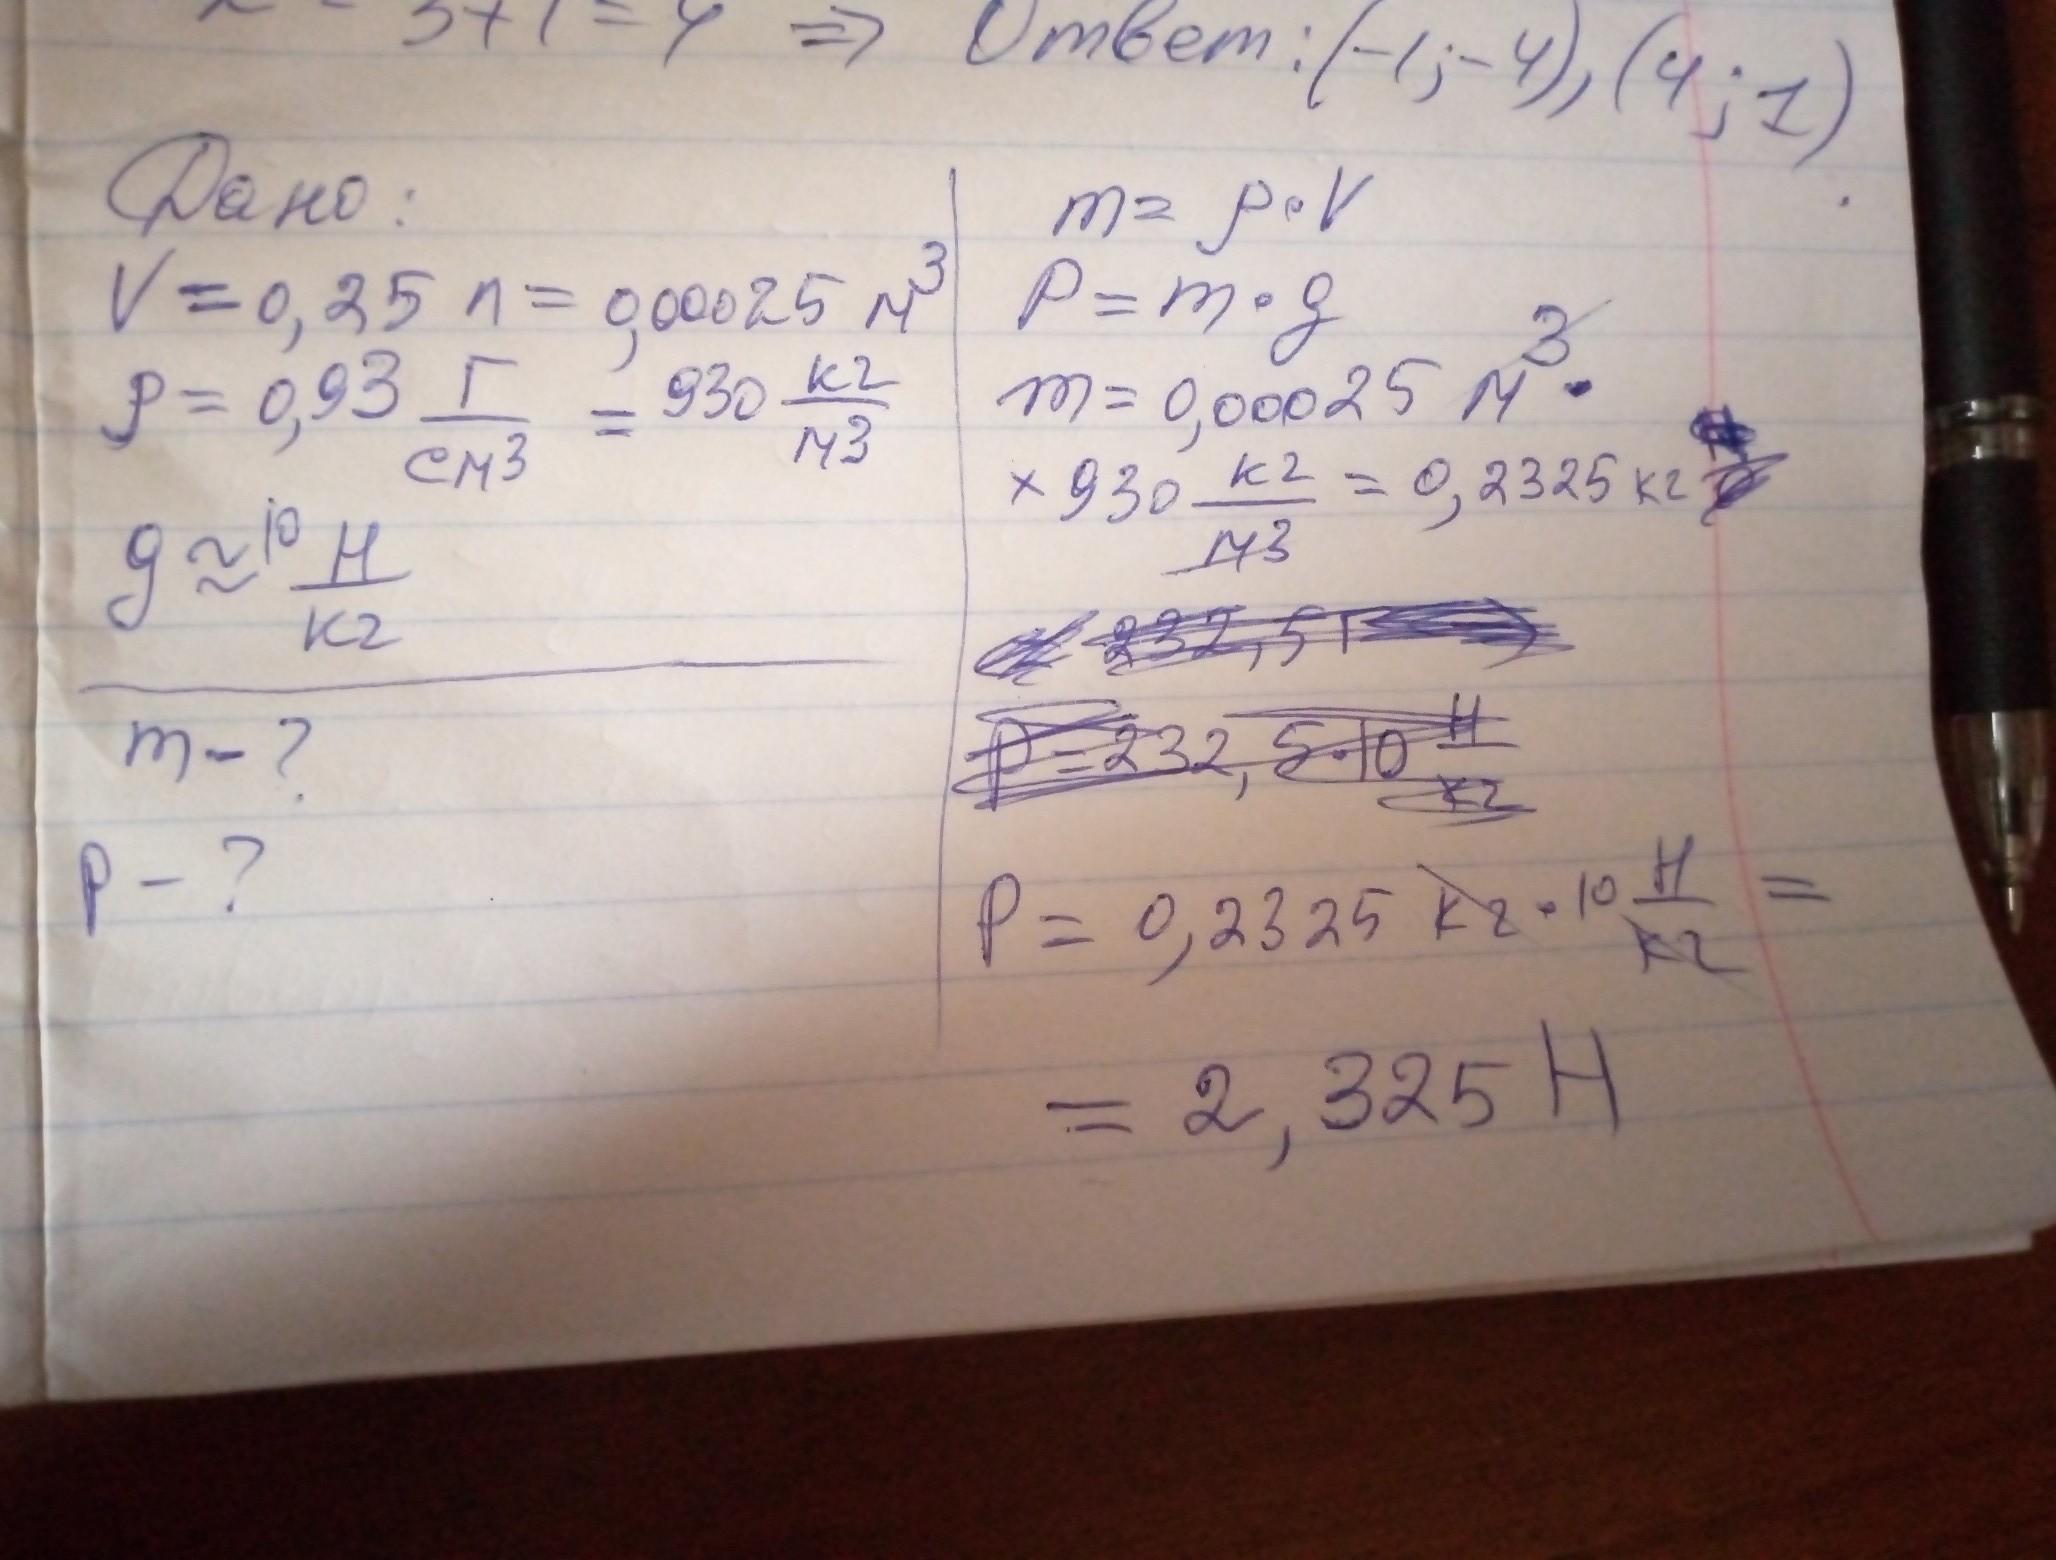 3+1=4 => Ответ: (-1;-4), (4;1).
Дано:
V = 0,25 л = 0,00025 м³
ρ = 0,93 г/см³ = 930 кг/м³
g ≈ 10 Н/кг
m - ?
P - ?
m = ρ•V
P = m•g
m = 0,00025 м³ •
× 930 кг/м³ = 0,2325 кг
232,5 г
P = 232,5•10 Н/кг
P = 0,2325 кг • 10 Н/кг =
= 2,325 Н